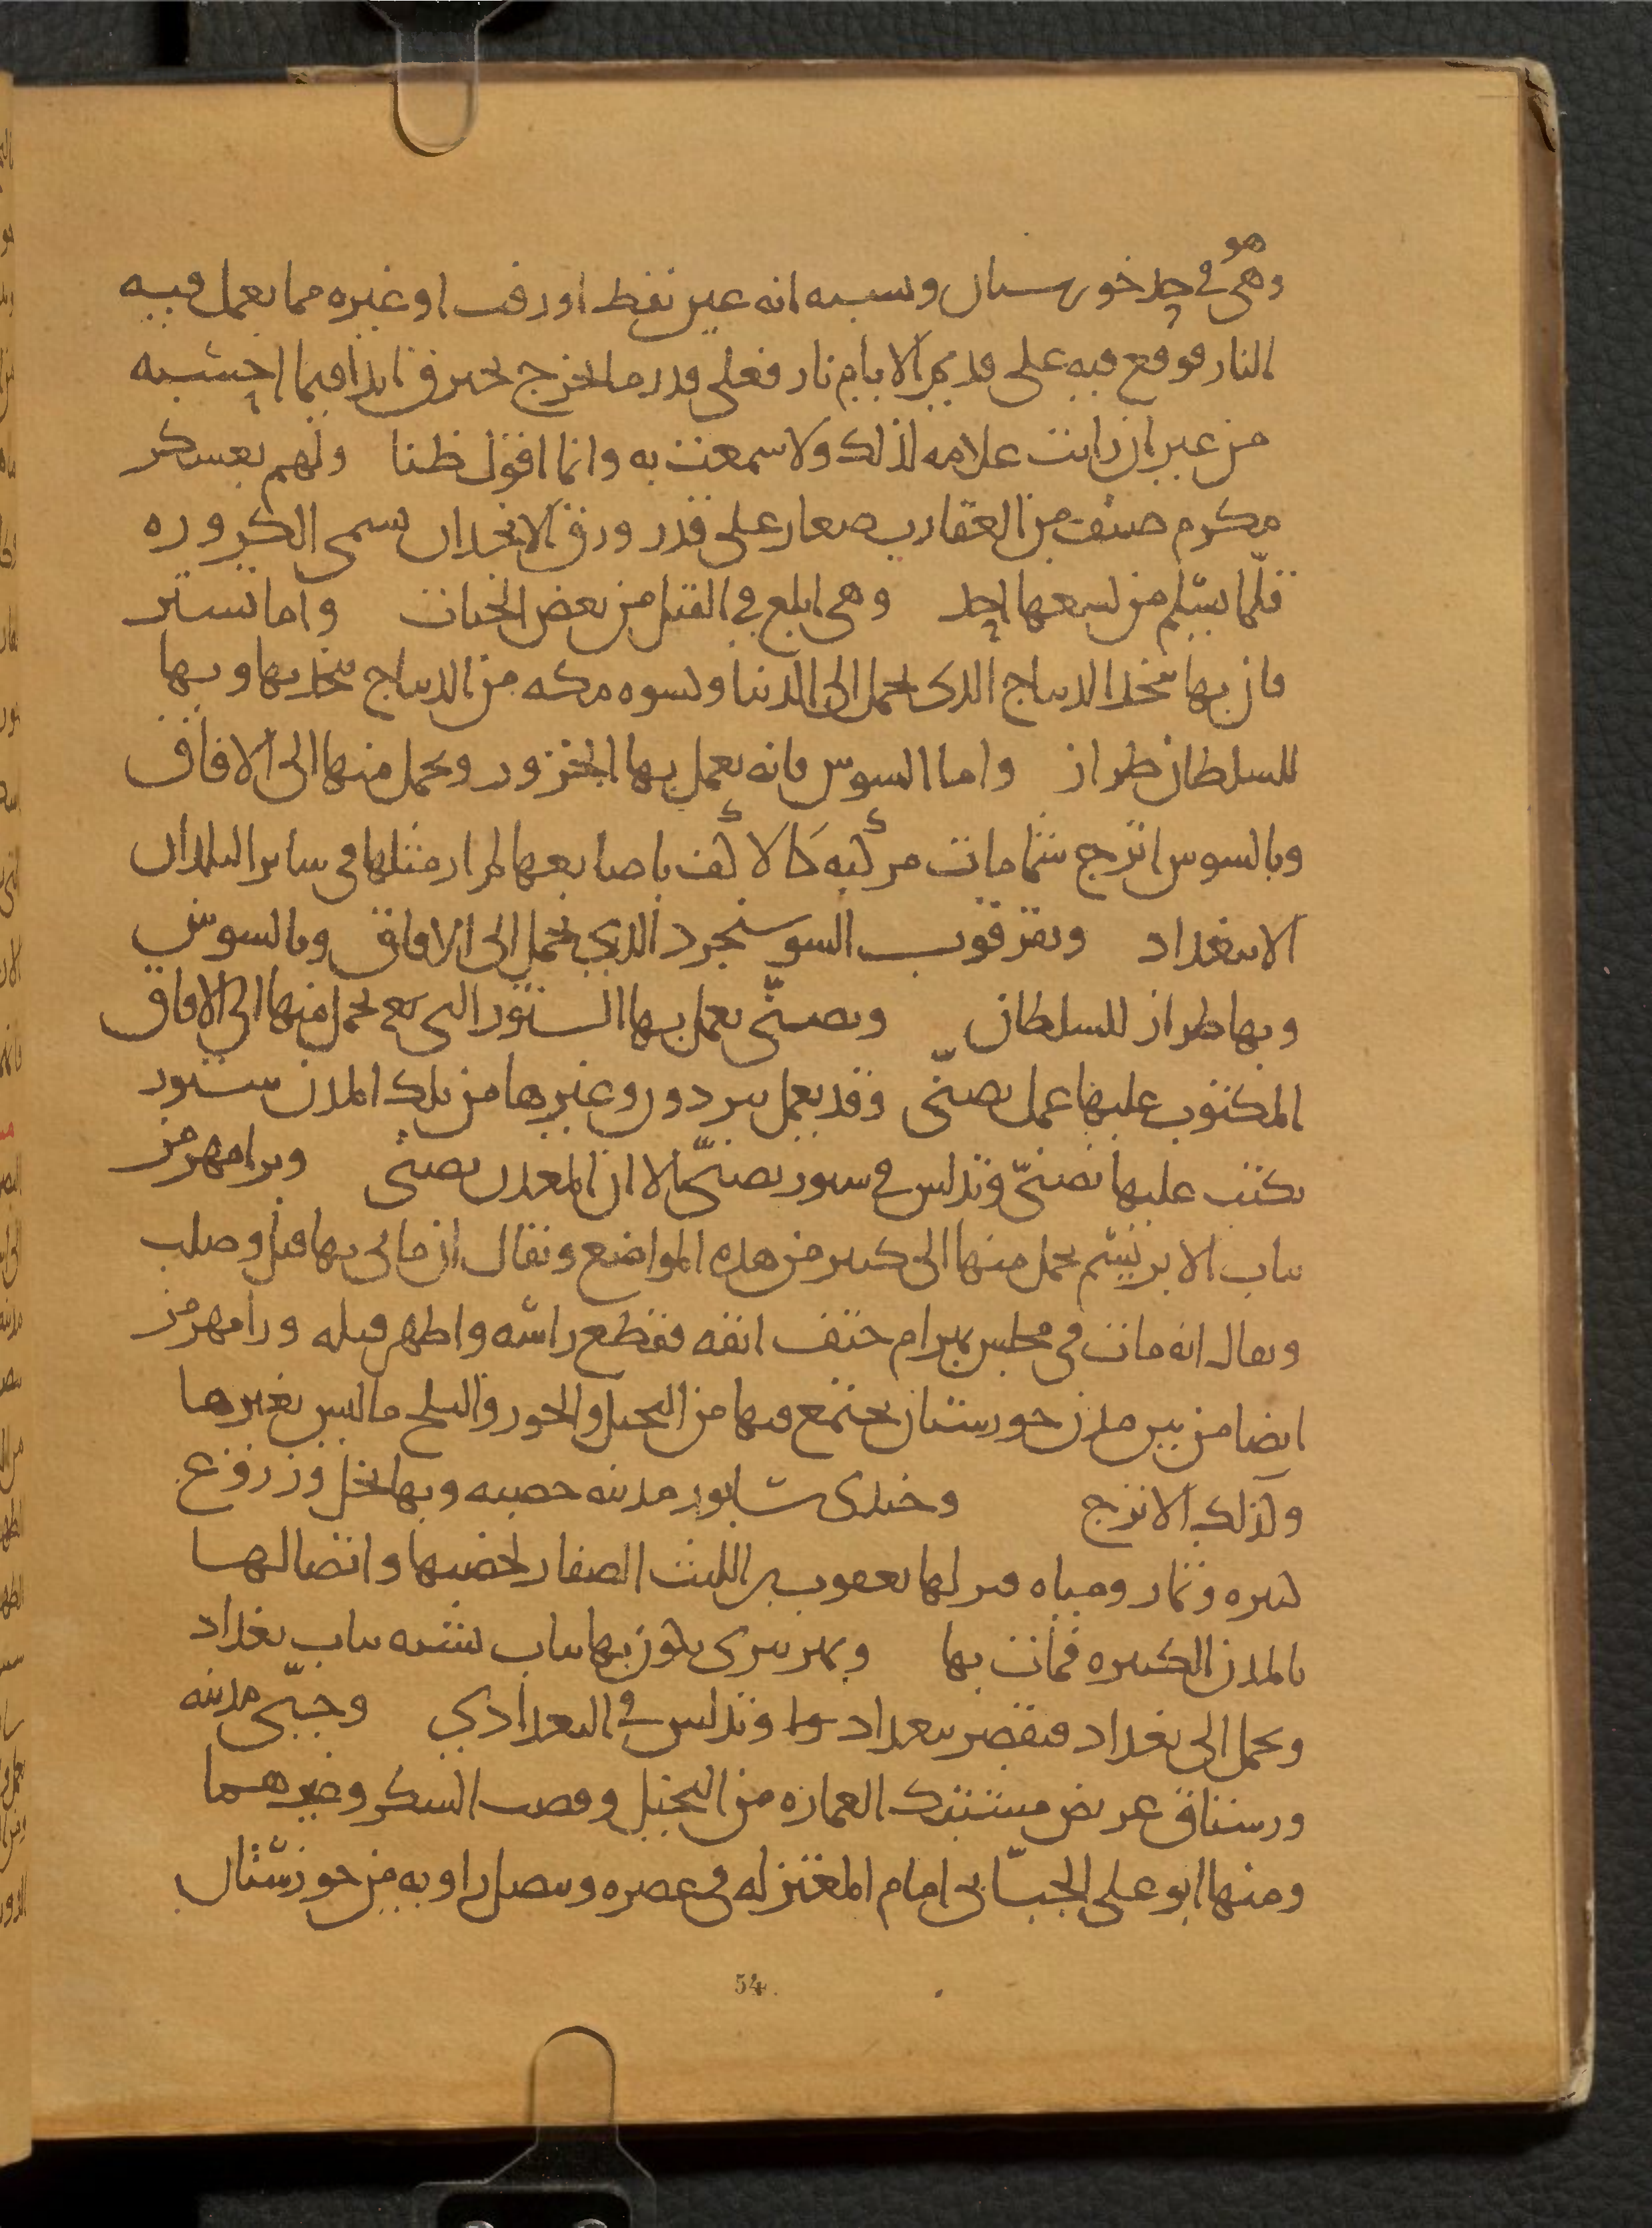 هو
وهى فى حد خورستان ونسبه انه عين نفط او زفت او غيره مما يعمل فيه
النار فوقع فيه على قديم الايام نار فعلى قدر ما يخرج يحترق ابدا فيما احسبه
من غير ان رايت علامه لذلك ولا سمعت به وانما اقول ظنا ولهم بعسكر
مكرم صنف من العقارب صغار على قدر ورق الانجدان تسمى الكروره
قلّما يسلم من لسعها احد وهى ابلغ فى القتل من بعض الحيات واما تستر
فان بها يتخذ الديباج الذى يحمل الى الدنيا وكسوه مكه من الديباج يتخذ بها وبها
للسلطان طراز واما السوس فانه يعمل بها الخزوز ويحمل منها الى الافاق
وبالسوس اترج شمامات مركبه كالاكف باصابعها لم ار مثلها فى ساير البلدان
الا ببغداد وبقرقوب السوسنجرد الذى يحمل الى الافاق وبالسوس
وبها طراز للسلطان وبصنّى يعمل بها الستور التى يحمل منها الى الافاق
المكتوب عليها عمل بصنّى وقد يعمل ببردون وغيرها من تلك المدن ستور
يكتب عليها بصنىّ وتدلس فى ستور بصنىّ الا ان المعدن بصنى وبرامهرمز
ثياب الابريسم يحمل منها الى كثير من هذه المواضع ويقال ان مانى بها قتل وصلب
ويقال انه مات فى محبس بهرام حتف انفه فقطع راسه واظهر قتله ورامهرمز
ايضا من بين مدن خورستان يجتمع فيها من النخيل والجوز والثلج ما ليس بغيرها
وكذلك الاترج وجندى شابور مدينه خصبه وبها نخل وزروع
كثيره وثمار ومياه نزلها يعقوب بن الليث الصفار لخصبها واتصالها
بالمدن الكثيره فمات بها وبنهر تيرى يكون بها ثياب تشبه ثياب بغداد
ويحمل الى بغداد فيقصر ببغداد وتدلس فى البغدادي وجبّى مدينه
ورستاق عريض مشتبك العماره من النخيل وقصب السكر وغيرهما
ومنها ابو على الجبّايى امام المعتزله فى عصره ويتصل زاويه من خورستان
54